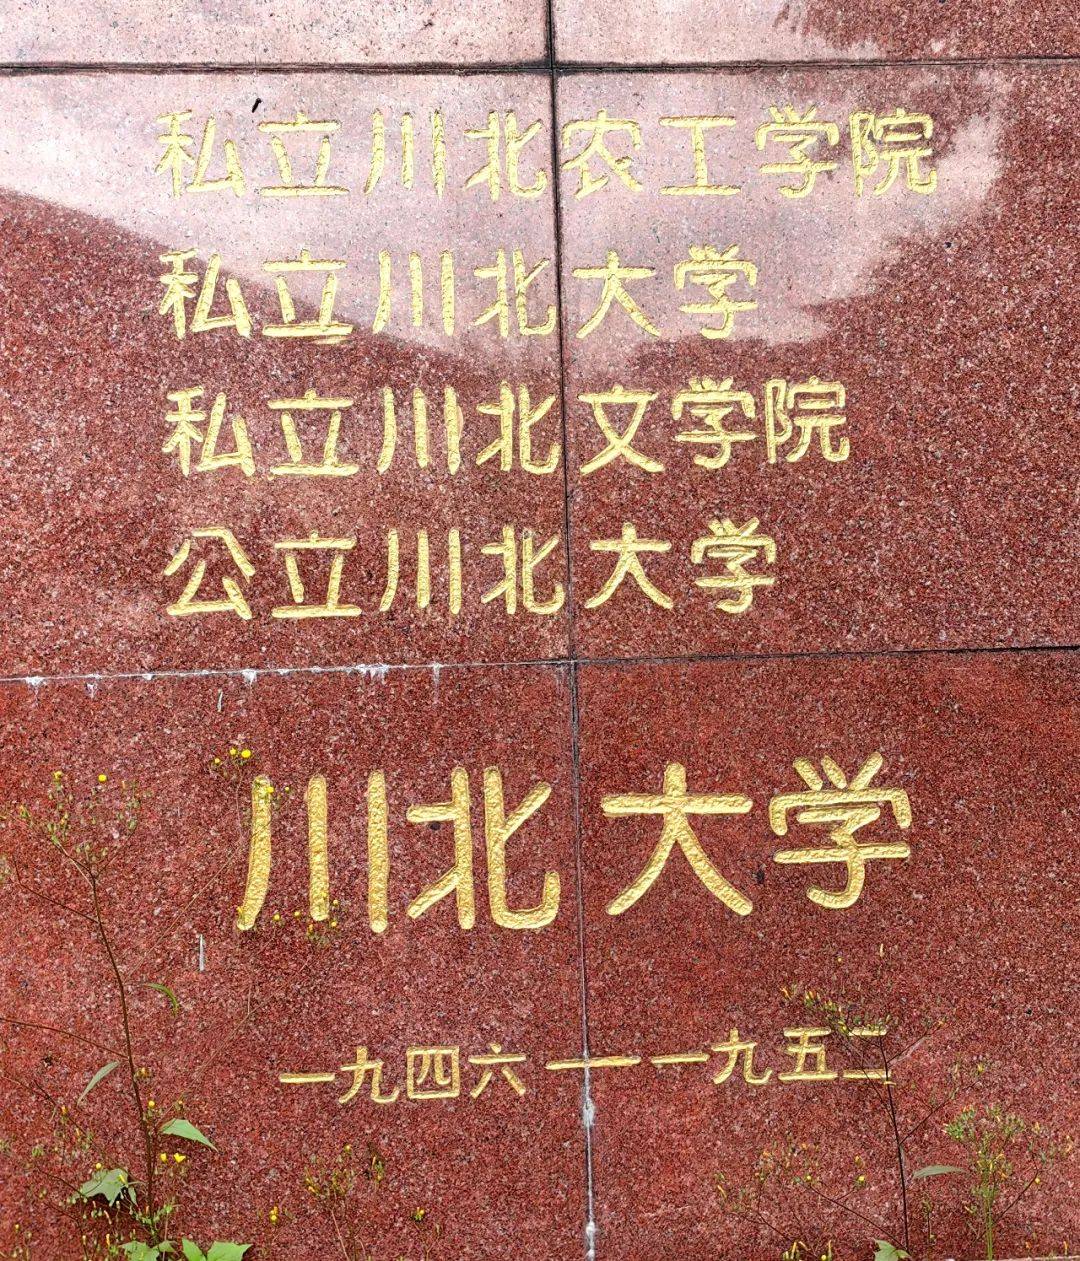 私立川北农工学院
私立川北大学
私立川北文学院
公立川北大学
川北大学
一九四六——一九五二